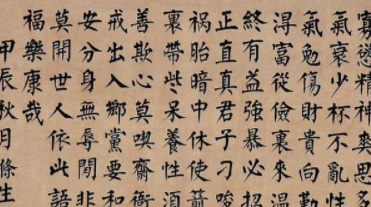 寡慾精神爽思多
氣衰少杯不亂性
氣勉傷財貴向勤
淂富從儉裏來溫
終有益強暴必招
正直真君子刁唆
禍胎暗中休使箭
裏帶些呆養性須
善欺心莫喫齋衙
戒出入鄉黨要和
安分身無辱閒非
莫開世人依此語
福樂康哉
甲辰秋月條生